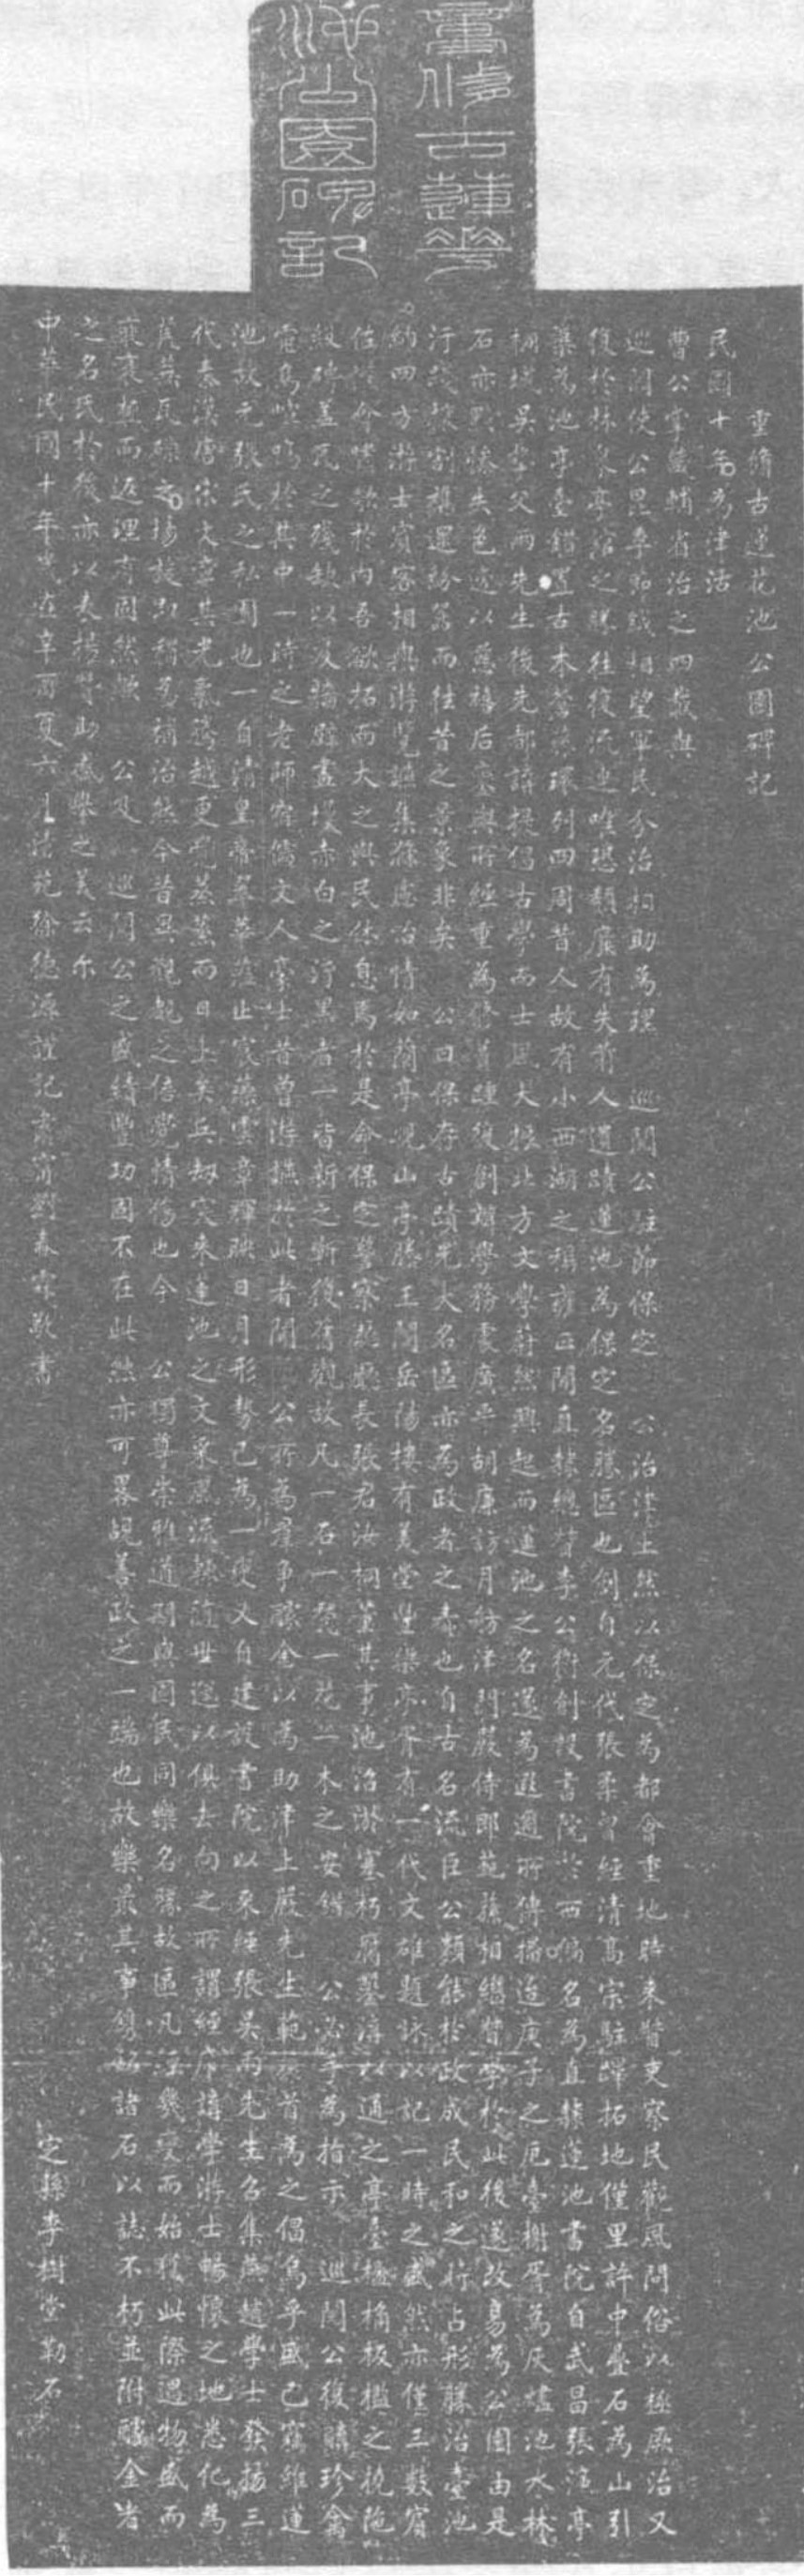 重修古蓮花
池公園碑記
重脩古蓮花池公園碑記
民國十年為津沽
曹公宰畿輔省治之四載與
巡閱使公昆季節鉞相望軍民分治相助為理 巡閱公駐節保定 公治津上然以保定為都會重地時來督吏察民觀風問俗以極厥治又
復於林泉亭館之勝往復流連唯恐頹廢有失前人遺蹟蓮池為保定名勝區也創自元代張柔曾經清高宗駐蹕拓地僅里許中疊石為山引
渠為池亭臺錯置古木蒼蔭環列四周昔人故有小西湖之稱雍正間直隸總督李公衛創設書院於西偏名為直隸蓮池書院自武昌張濂亭
桐城吳摯父兩先生後先都講提倡古學而士風大振北方文學蔚然興起而蓮池之名遂為遐邇所傳播迨庚子之厄臺榭胥為灰燼池水林
石亦黯慘失色迄以慈禧后臺輿所經重為修葺踵復創辦學務處廣平胡廉訪月舫津門嚴侍郎範蓀相繼督學於此後遂改易為公園由是
汙踐採割旗還紛籍而往昔之景象非矣 公曰保存古蹟光大名區亦為政者之責也自古名流臣公類能於政成民和之斾占形勝治臺池
約四方游士賓客相與游覽讌集滌慮冶情如蘭亭峴山亭滕王閣岳陽樓有美堂豐樂亭胥有一代文雄題詠以記一時之盛然亦僅三數賓
佐 於內吾欲拓而大之與民休息焉於是命保定警察廳廳長張君汝桐董其事池沼淤塞朽腐墾濬以通之亭臺楹桷板檻之杌陧
級磚蓋瓦之殘缺以及牆 畫壞赤白之汙黑者一皆新之斬復舊觀故凡一石一甃一花一木之安錯 公必手為指示 巡閱公復購珍禽
當鳥 鳴於其中一時之老師宿儒文人豪士昔曾游讌於此者聞 公所為羣爭醵金以為助津上嚴先生範 首為之倡烏乎盛已竊維蓮
池故元張氏之私園也一自清皇帝翠華蒞止宸藻雲章輝映日月形勢已為一變又自建設書院以來經張吳兩先生召集燕趙學士發揚三
代秦漢唐宋大章其光氣騰越更 蒸蒸而日上矣兵劫突來蓮池之文采風流熱隨世運以俱去向之所謂經序講學游士暢懷之地悉化為
荒蕪瓦礫之場旋即稍為補治然今昔異觀覩之倍覺情傷也今 公獨尊崇雅道期與國民同樂名勝故區凡 幾變而始獲此際遇物盛而
衰衰極而返理有固然歟 公及 巡閱公之盛績豐功固不在此然亦可畧覘善政之一端也故樂最其事鐫 諸石以誌不朽並附醵金者
之名氏於後亦以表揚贊助盛舉之美云尔
中華民國十年歲在辛酉夏六月清苑徐德源謹記肅甯劉春霖敬書
定縣李樹堂勒石